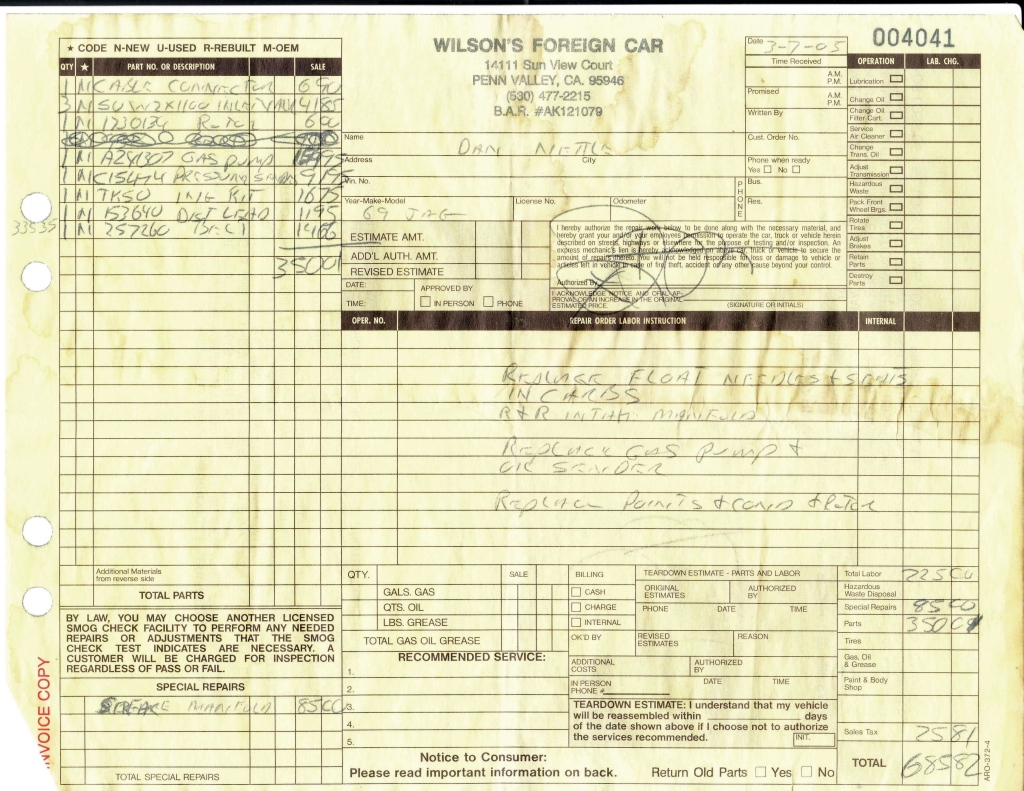 ★ CODE N-NEW U-USED R-REBUILT M-OEM
QTY ★ PART NO. OR DESCRIPTION SALE
1 N CABLE CONNECTOR 690
3 N SUWZX1100 INLET 4185
1 N 600
1 N GAS PUMP
1 N
1 N TK50 1675
1 N 153640 DIST LEAD 1195
1 N 257260
33535
35001
WILSON'S FOREIGN CAR
14111 Sun View Court
PENN VALLEY, CA. 95946
(530) 477-2215
B.A.R. #AK121079
Date 3-7-05
004041
Time Received
A.M.
P.M.
Promised
A.M.
P.M.
Written By
Cust. Order No.
Phone when ready
Yes No
PHONE
Bus.
Res.
OPERATION LAB. CHG.
Lubrication
Change Oil
Change Oil
Filter Cart.
Service
Air Cleaner
Change
Trans. Oil
Adjust
Transmission
Hazardous
Waste
Pack Front
Wheel Brgs.
Rotate
Tires
Adjust
Brakes
Retain
Parts
Destroy
Parts
Name DAN NETTLE
Address City
Vin. No.
Year-Make-Model License No. Odometer
69 JAG
ESTIMATE AMT.
ADD'L AUTH. AMT.
REVISED ESTIMATE
DATE: APPROVED BY
TIME: IN PERSON PHONE
I hereby authorize the repair work below to be done along with the necessary material, and
hereby grant your and/or your employees permission to operate the car, truck or vehicle herein
described on streets, highways or elsewhere for the purpose of testing and/or inspection. An
express mechanic's lien is hereby acknowledged on above car, truck or vehicle to secure the
amount of repairs thereto. You will not be held responsible for loss or damage to vehicle or
articles left in vehicle in case of fire, theft, accident or any other cause beyond your control.
Authorized By
I ACKNOWLEDGE NOTICE AND ORAL AP-
PROVAL OF AN INCREASE IN THE ORIGINAL
ESTIMATED PRICE. (SIGNATURE OR INITIALS)
OPER. NO. REPAIR ORDER LABOR INSTRUCTION INTERNAL
REPLACE FLOAT NEEDLES & SEATS
IN CARBS
R&R INTAK MANIFOLD
REPLACE GAS PUMP &
OIL SENDER
REPLACE POINTS & COND & ROTOR
Additional Materials
from reverse side
TOTAL PARTS
BY LAW, YOU MAY CHOOSE ANOTHER LICENSED
SMOG CHECK FACILITY TO PERFORM ANY NEEDED
REPAIRS OR ADJUSTMENTS THAT THE SMOG
CHECK TEST INDICATES ARE NECESSARY. A
CUSTOMER WILL BE CHARGED FOR INSPECTION
REGARDLESS OF PASS OR FAIL.
SPECIAL REPAIRS
MANIFOLD 8500
TOTAL SPECIAL REPAIRS
INVOICE COPY
QTY. SALE
GALS. GAS
QTS. OIL
LBS. GREASE
TOTAL GAS OIL GREASE
RECOMMENDED SERVICE:
1.
2.
3.
4.
5.
BILLING
CASH
CHARGE
INTERNAL
OK'D BY
TEARDOWN ESTIMATE - PARTS AND LABOR
ORIGINAL
ESTIMATES
AUTHORIZED
BY
PHONE DATE TIME
REVISED
ESTIMATES
REASON
ADDITIONAL
COSTS
AUTHORIZED
BY
IN PERSON
PHONE #
DATE TIME
TEARDOWN ESTIMATE: I understand that my vehicle
will be reassembled within ____ days
of the date shown above if I choose not to authorize
the services recommended. INIT.
Notice to Consumer:
Please read important information on back.
Return Old Parts Yes No
Total Labor 22500
Hazardous
Waste Disposal
Special Repairs 8500
Parts 35001
Tires
Gas, Oil
& Grease
Paint & Body
Shop
Sales Tax 2581
TOTAL 68582
ARO-372-4